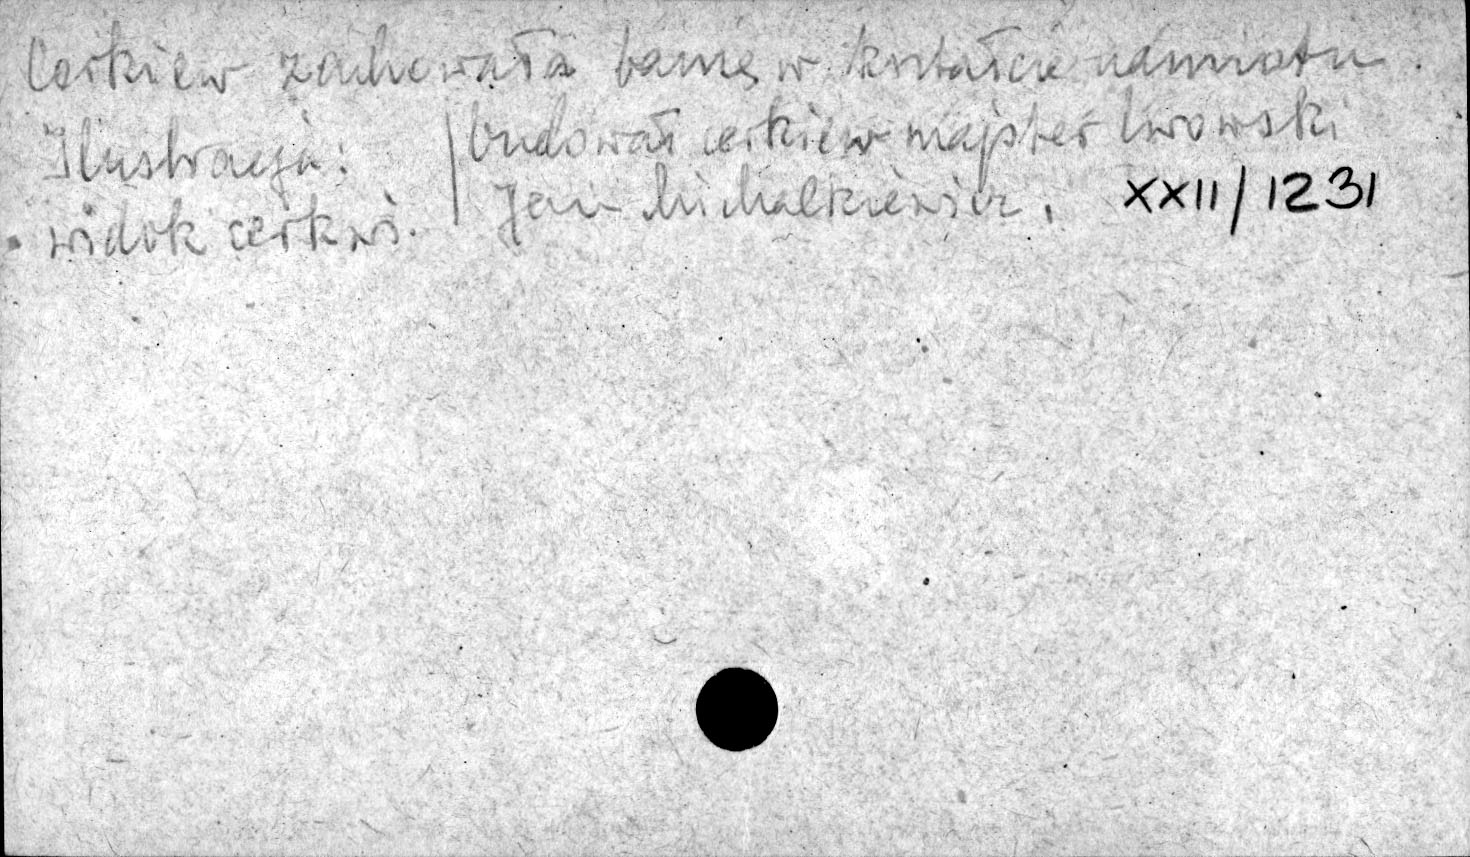 Cerkiew zachowała banię w kształcie namiotu.
Ilustracja: | budował cerkiew majster lwowski
widok cerkwi. | Jan Michalkiewicz. XXII/1231